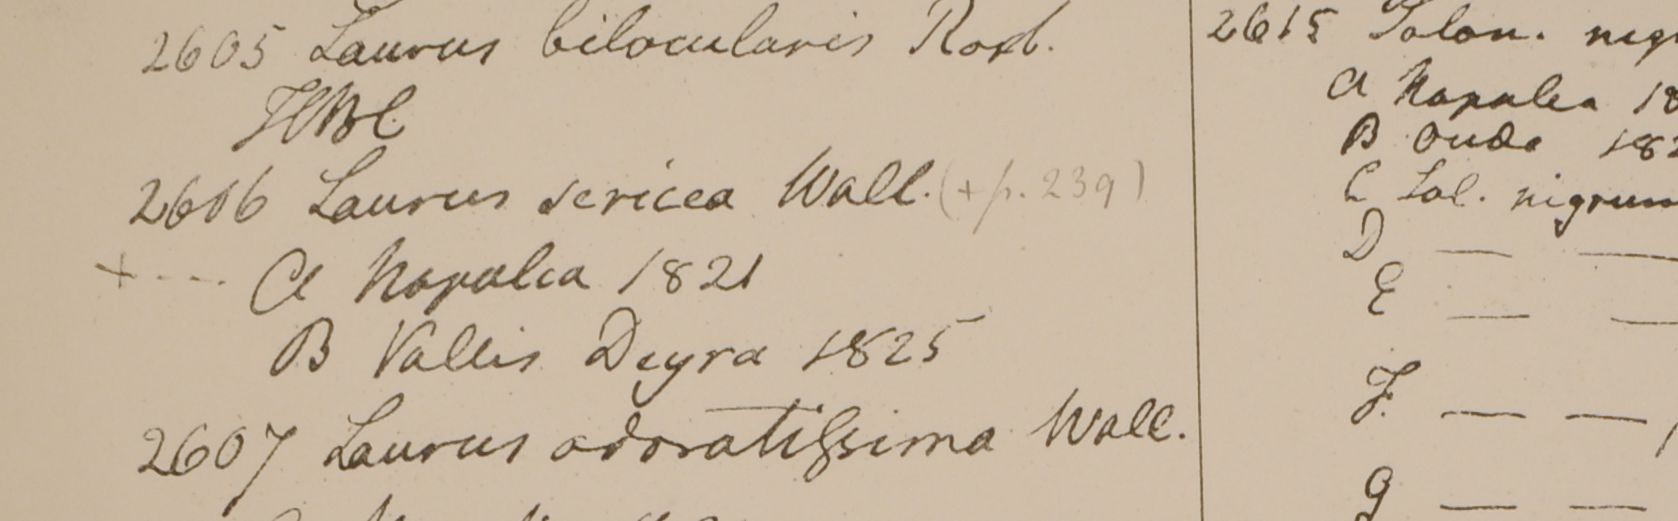 2605 Laurus bilocularis Roxb.
HBC
2606 Laurus sericea Wall. (+ p. 239)
+ --- A Napalia 1821
B Vallis Deyra 1825
2607 Laurus odoratissima Wall.
2615 Solan. nig
A Napalia 18
B Oude 182
C Sol. nigrum
D — —
E — —
F. — —
G — —